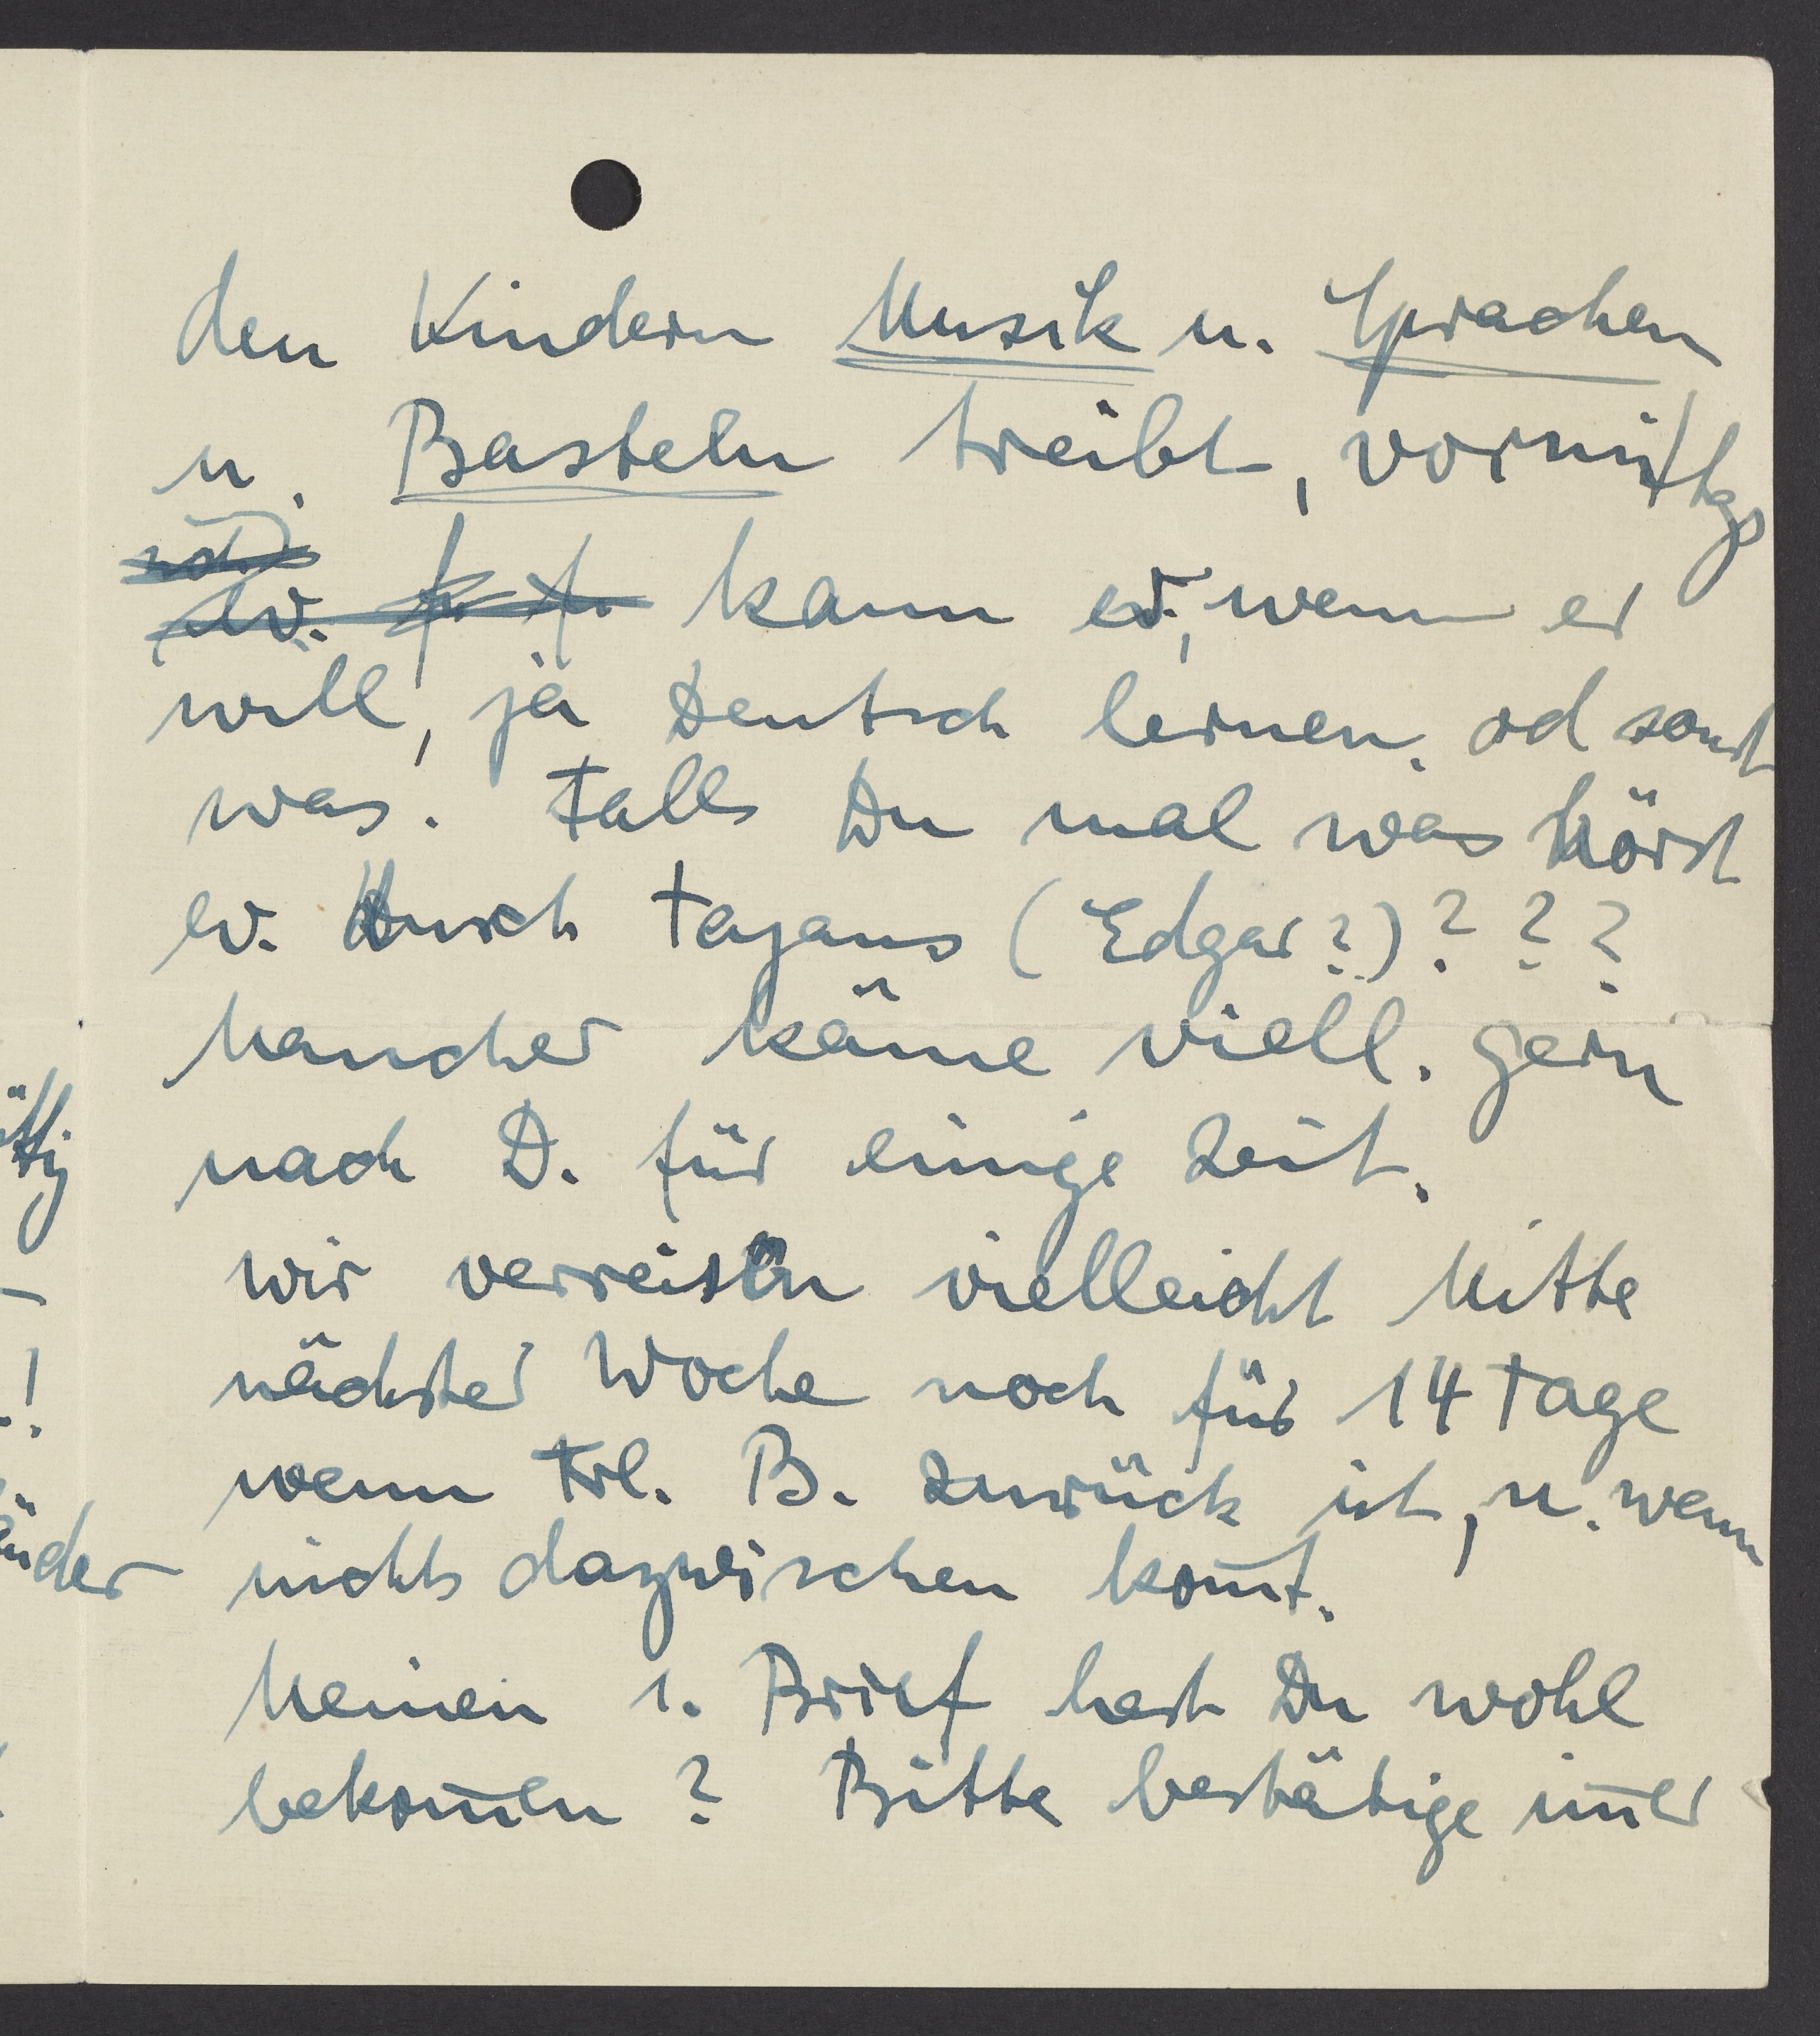 den Kindern Musik u. Sprachen
u. Basteln treibt, vormittgs
kann er, wenn er
will, ja Deutsch lernen, od sonst
was. Falls Du mal was hörst
ev. durch Tajans (Edgar?)???
Mancher käme viell. gern
nach D. für einige Zeit.
Wir verreisen vielleicht Mitte
nächster Woche noch für 14 Tage
wenn Frl. B. zurück ist, u. wenn
nichts dazwischen kom̅t.
Meinen 1. Brief hast Du wohl
bekom̅en? Bitte bestätige im̅er